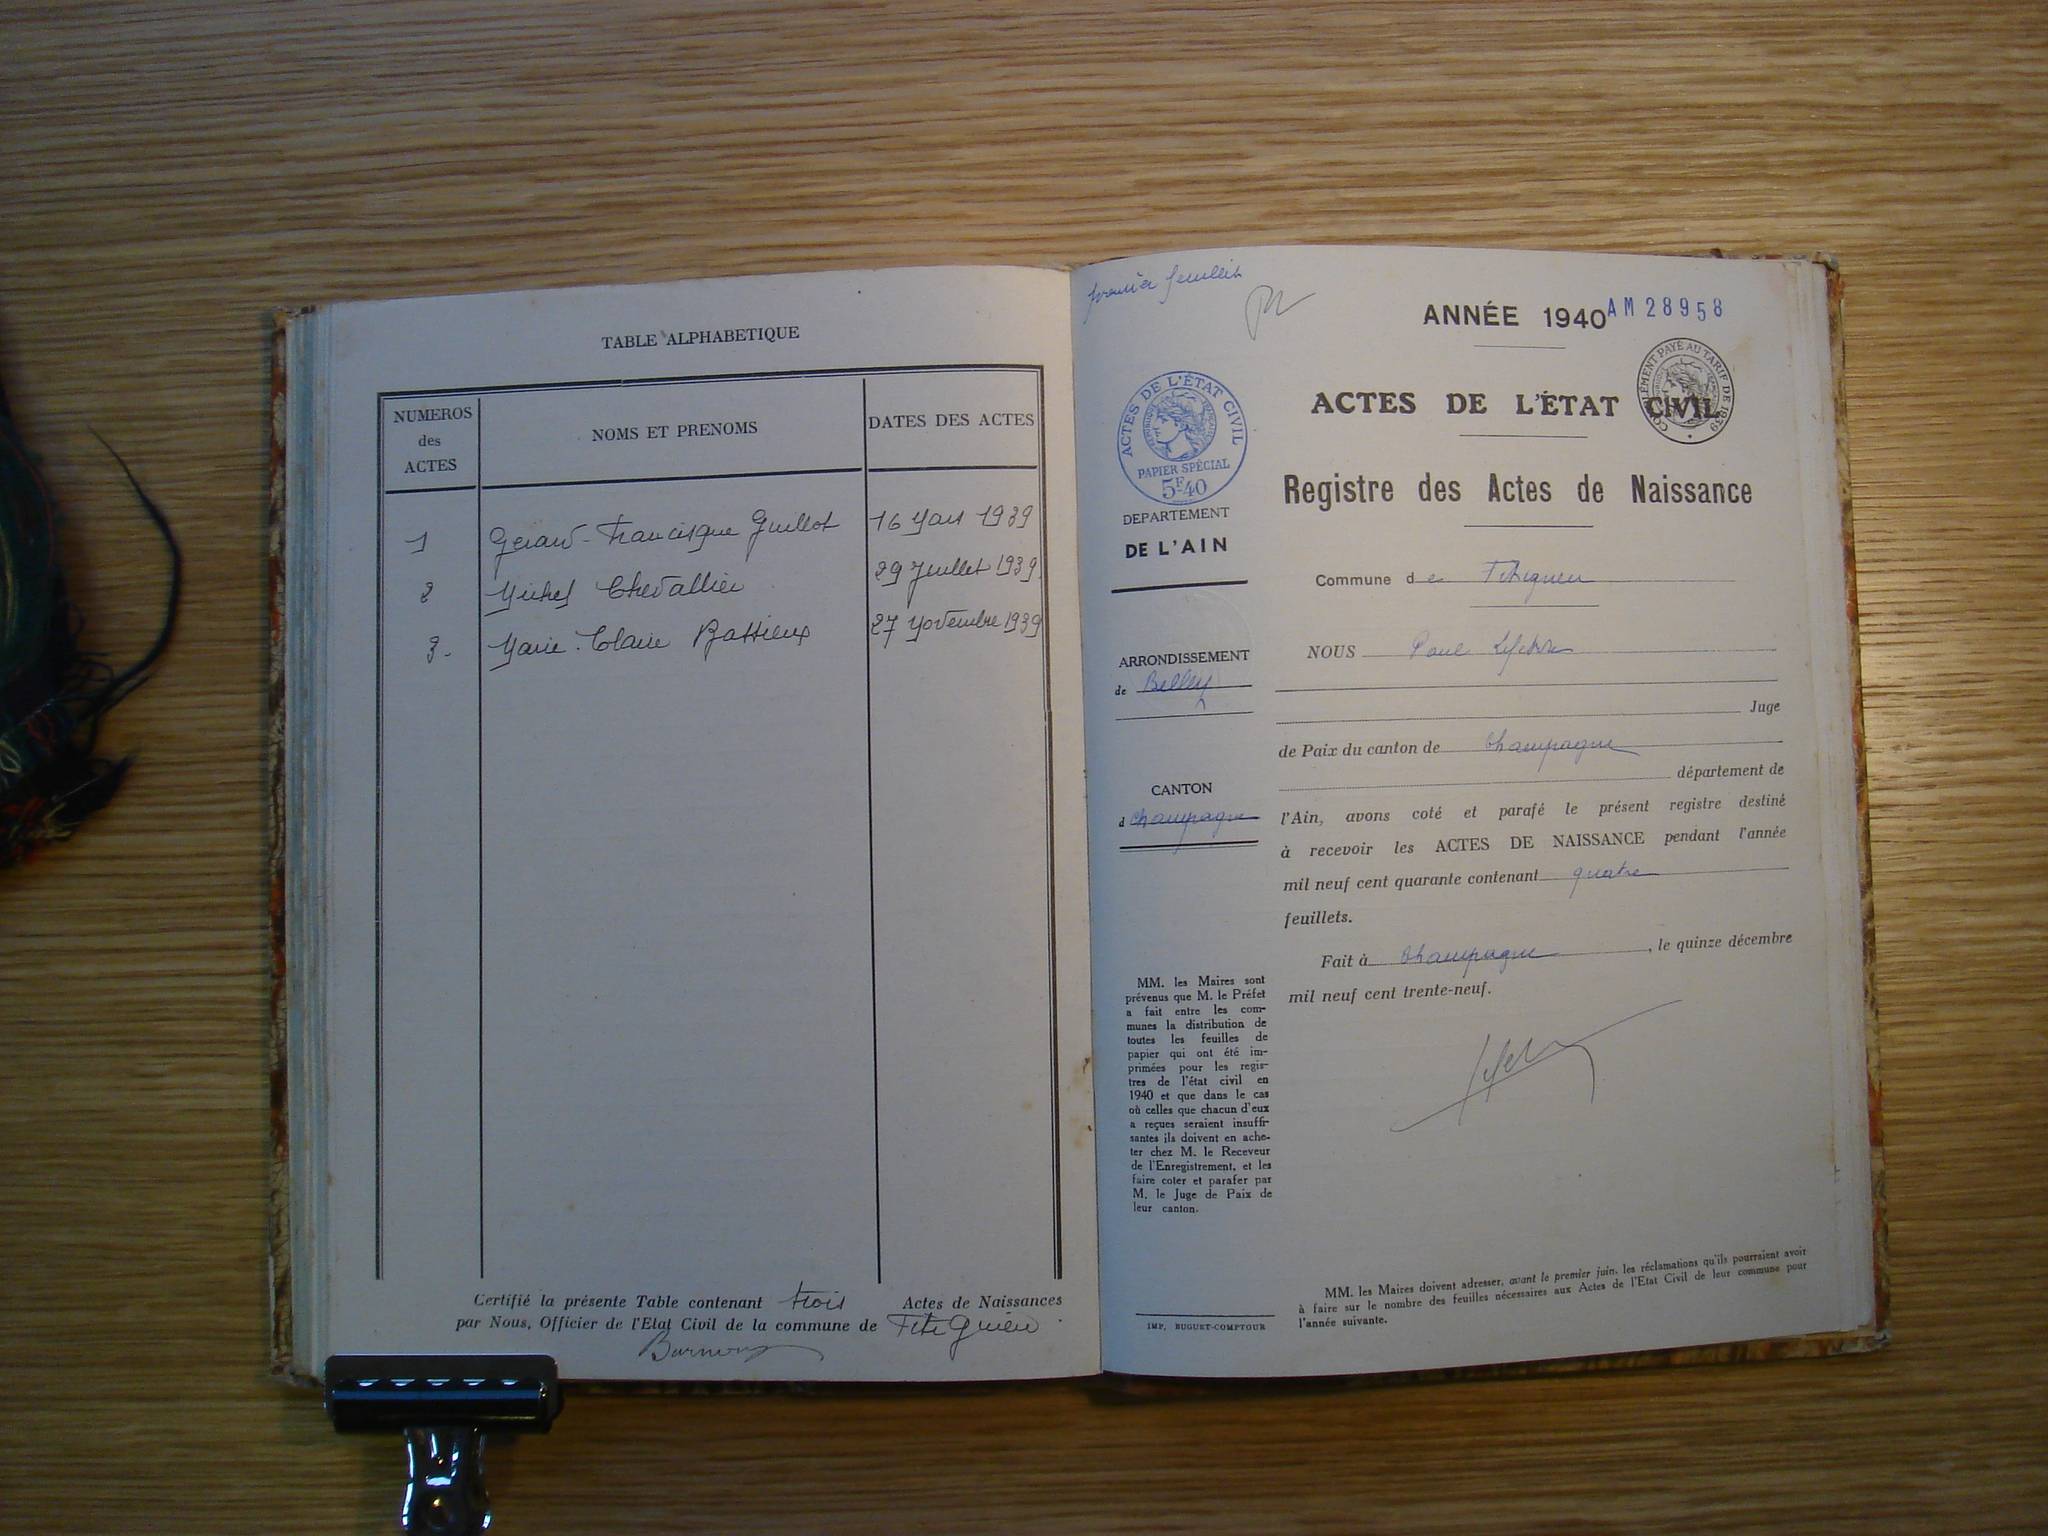 TABLE ALPHABETIQUE
NUMEROS
des
ACTES
NOMS ET PRENOMS
DATES DES ACTES
1 Gérard-Francisque Guillot 16 Mars 1939
2 Michel Chevallier 29 Juillet 1939.
3. Marie-Claire Battieux 27 Novembre 1939
Certifié la présente Table contenant trois Actes de Naissances
par Nous, Officier de l'Etat Civil de la commune de Fitignieu.
premier feuillet
ANNÉE 1940
AM 28958
ACTES DE L'ÉTAT CIVIL
PAPIER SPÉCIAL
5F40
COMPLÉMENT PAYÉ AU TARIF DE 1939
ACTES DE L'ÉTAT CIVIL
Registre des Actes de Naissance
DEPARTEMENT
DE L'AIN
ARRONDISSEMENT
de Belley
CANTON
d Champagne
MM. les Maires sont
prévenus que M. le Préfet
a fait entre les com-
munes la distribution de
toutes les feuilles de
papier qui ont été im-
primées pour les regis-
tres de l'état civil en
1940 et que dans le cas
où celles que chacun d'eux
a reçues seraient insuffi-
santes ils doivent en ache-
ter chez M. le Receveur
de l'Enregistrement, et les
faire coter et parafer par
M. le Juge de Paix de
leur canton.
IMP. BUGUET-COMPTOUR
Commune de Fitignieu
NOUS Paul Lefebvre
Juge
de Paix du canton de Champagne
département de
l'Ain, avons coté et parafé le présent registre destiné
à recevoir les ACTES DE NAISSANCE pendant l'année
mil neuf cent quarante contenant quatre
feuillets.
Fait à Champagne, le quinze décembre
mil neuf cent trente-neuf.
MM. les Maires doivent adresser, avant le premier juin, les réclamations qu'ils pourraient avoir
à faire sur le nombre des feuilles nécessaires aux Actes de l'Etat Civil de leur commune pour
l'année suivante.